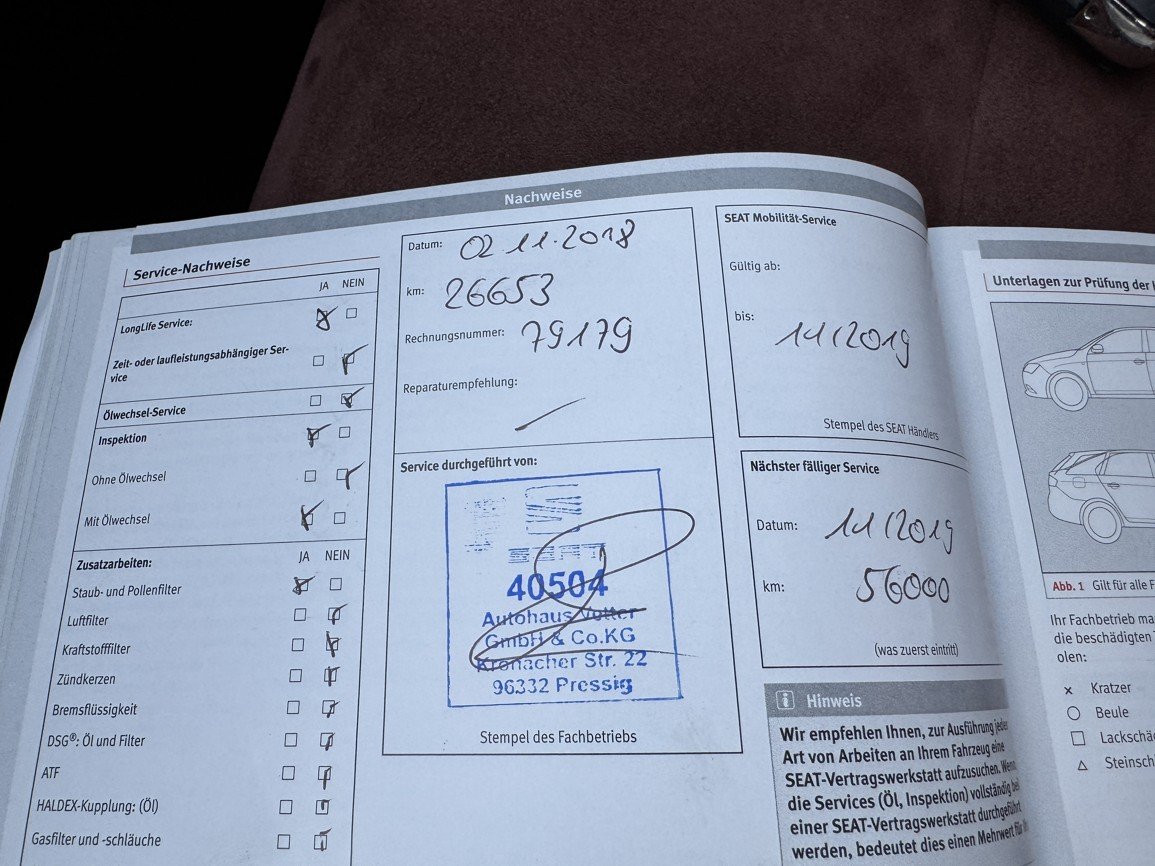 Nachweise
Service-Nachweise
JA NEIN
LongLife Service:
Zeit- oder laufleistungsabhängiger Ser-
vice
Ölwechsel-Service
Inspektion
Ohne Ölwechsel
Mit Ölwechsel
Zusatzarbeiten: JA NEIN
Staub- und Pollenfilter
Luftfilter
Kraftstofffilter
Zündkerzen
Bremsflüssigkeit
DSG®: Öl und Filter
ATF
HALDEX-Kupplung: (Öl)
Gasfilter und -schläuche
Datum: 02 11.2018
km: 26653
Rechnungsnummer: 79179
Reparaturempfehlung:
Service durchgeführt von:
40504
Autohaus Vetter
GmbH & Co.KG
Kronacher Str. 22
96332 Pressig
Stempel des Fachbetriebs
SEAT Mobilität-Service
Gültig ab:
bis: 11/2019
Stempel des SEAT Händlers
Nächster fälliger Service
Datum: 11/2019
km: 56000
(was zuerst eintritt)
Hinweis
Wir empfehlen Ihnen, zur Ausführung jeder
Art von Arbeiten an Ihrem Fahrzeug eine
SEAT-Vertragswerkstatt aufzusuchen. Wenn
die Services (Öl, Inspektion) vollständig bei
einer SEAT-Vertragswerkstatt durchgeführt
werden, bedeutet dies einen Mehrwert für
Unterlagen zur Prüfung der
Abb. 1 Gilt für alle
Ihr Fachbetrieb
die beschädigten
olen:
Kratzer
Beule